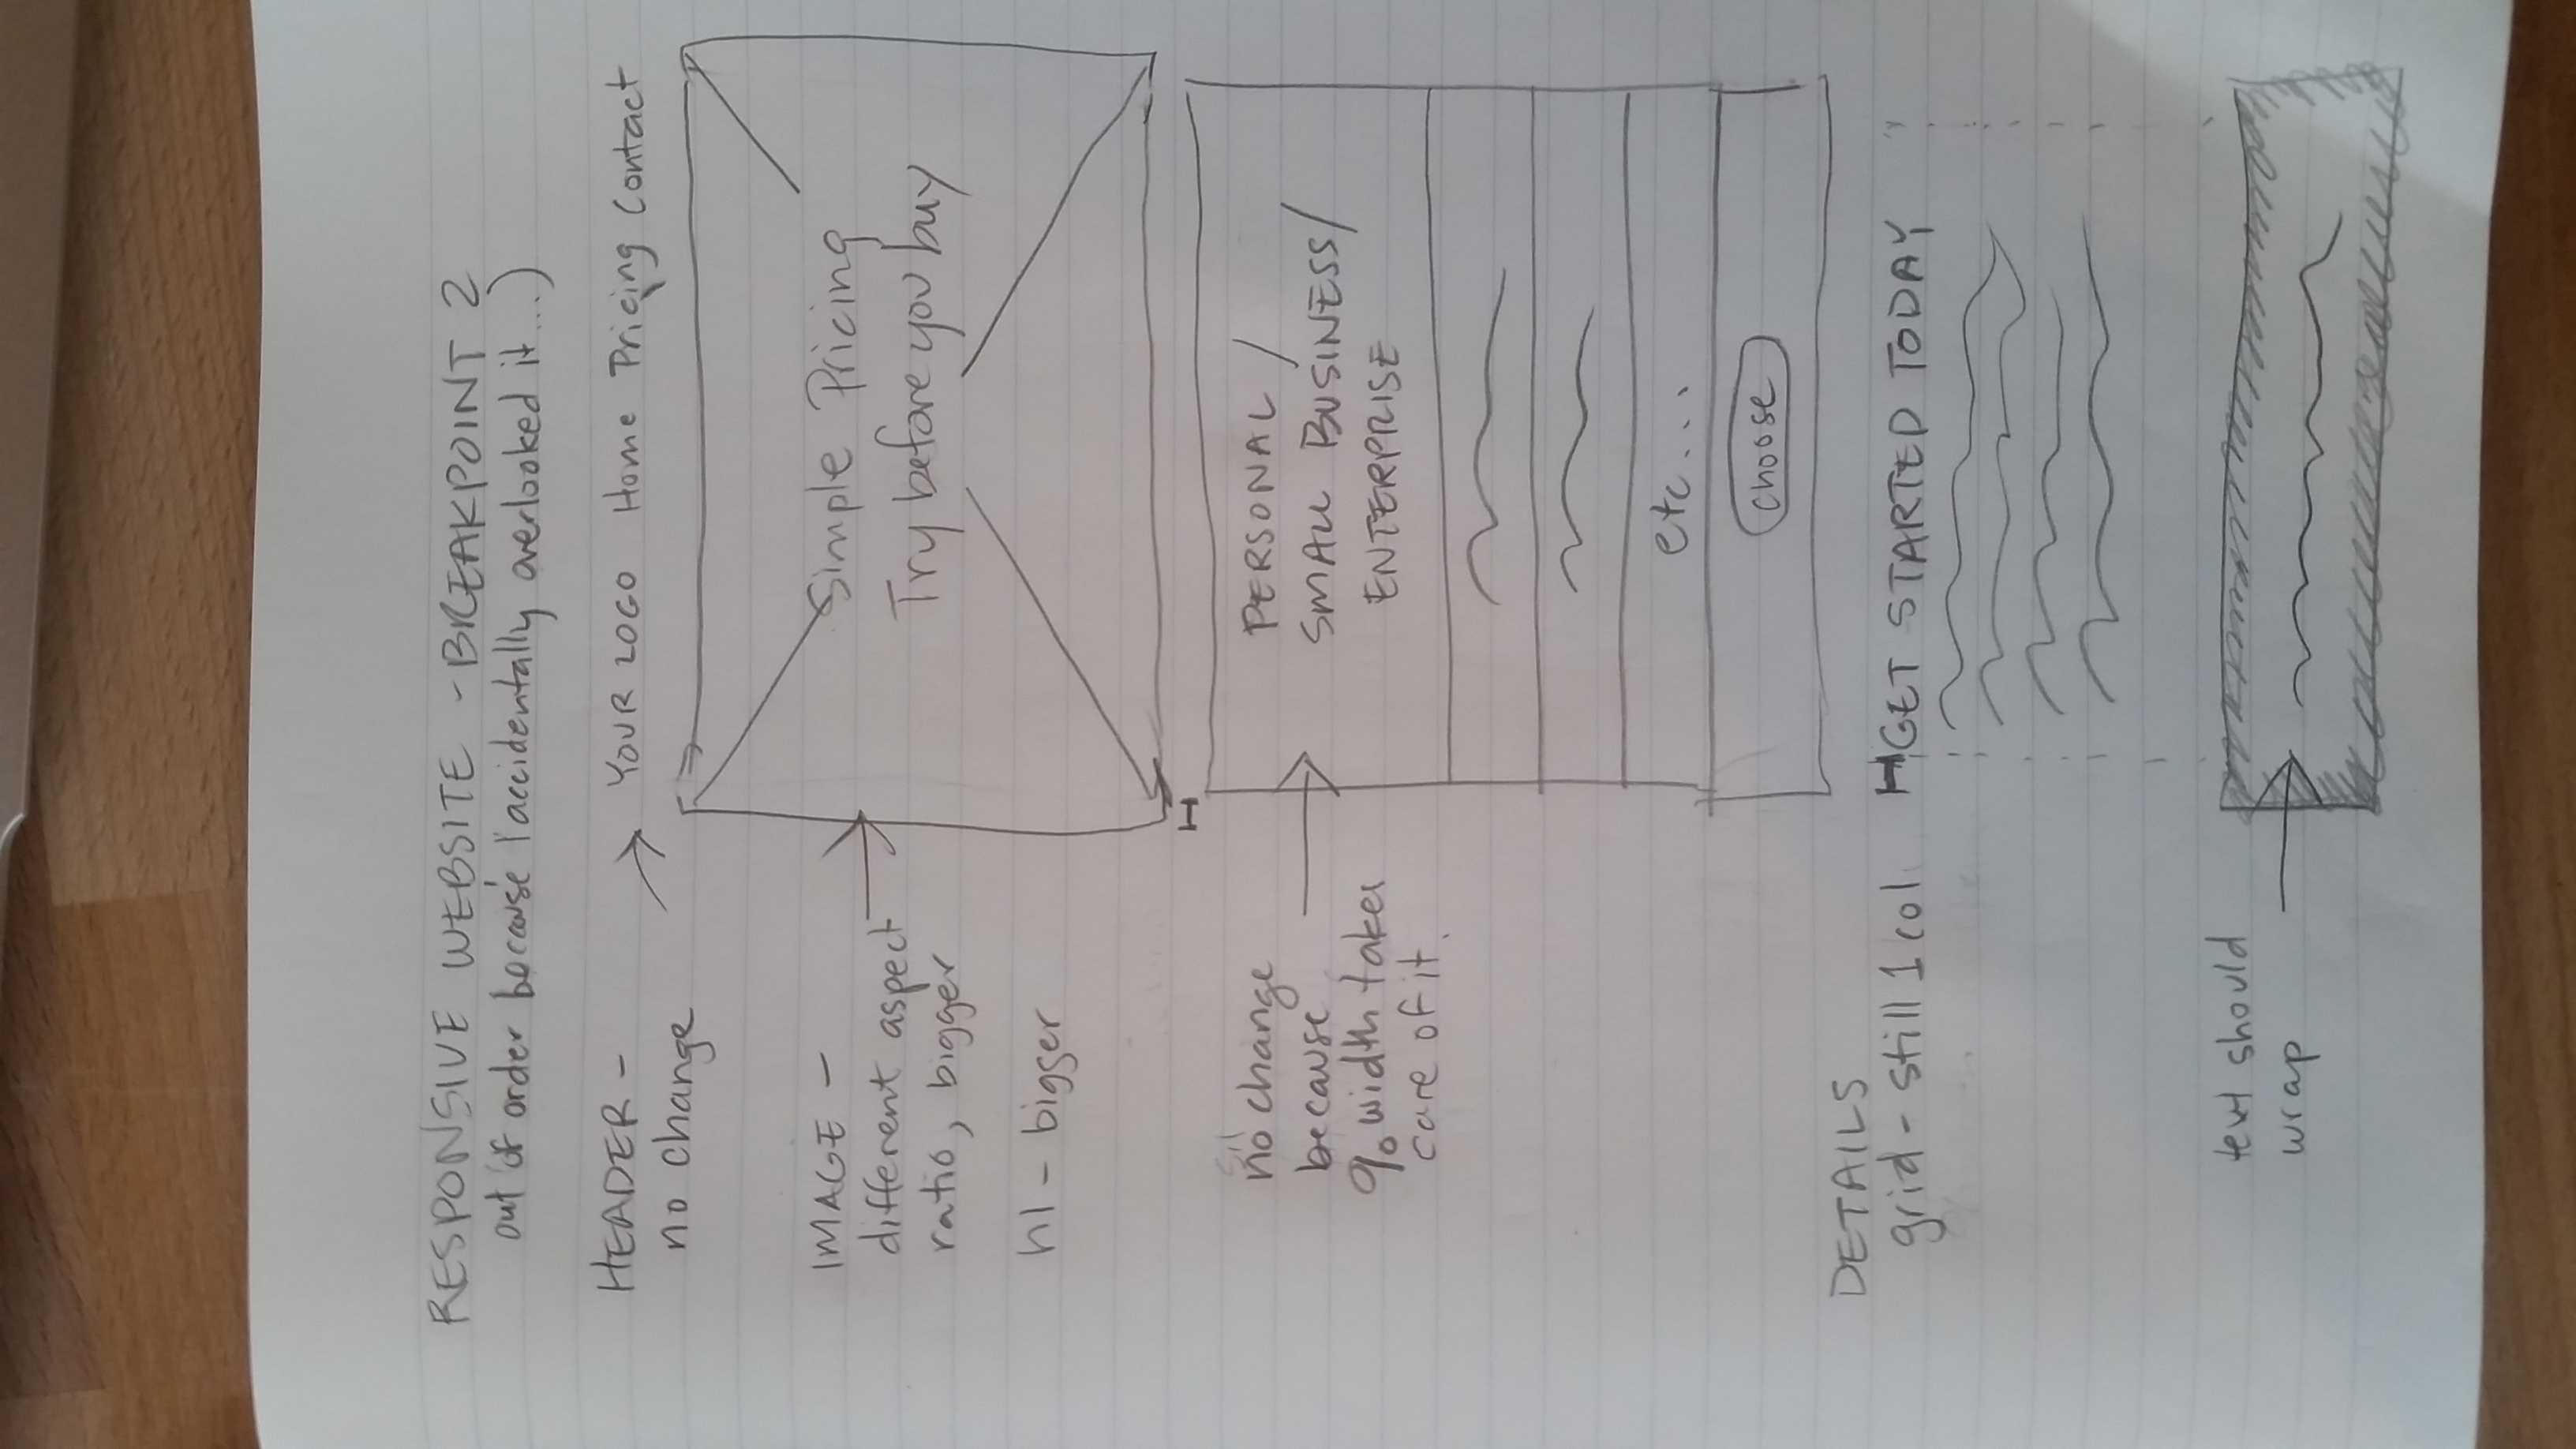 RESPONSIVE WEBSITE - BREAKPOINT 2
out of order because I accidentally overlooked it...)
HEADER -
no change
YOUR LOGO Home Pricing Contact
IMAGE -
different aspect
ratio, bigger
h1 - bigger
Simple Pricing
Try before you buy
no change
because
% width takes
care of it.
PERSONAL /
SMALL BUSINESS/
ENTERPRISE
etc...
choose
DETAILS
grid - still 1 col
GET STARTED TODAY
text should
wrap